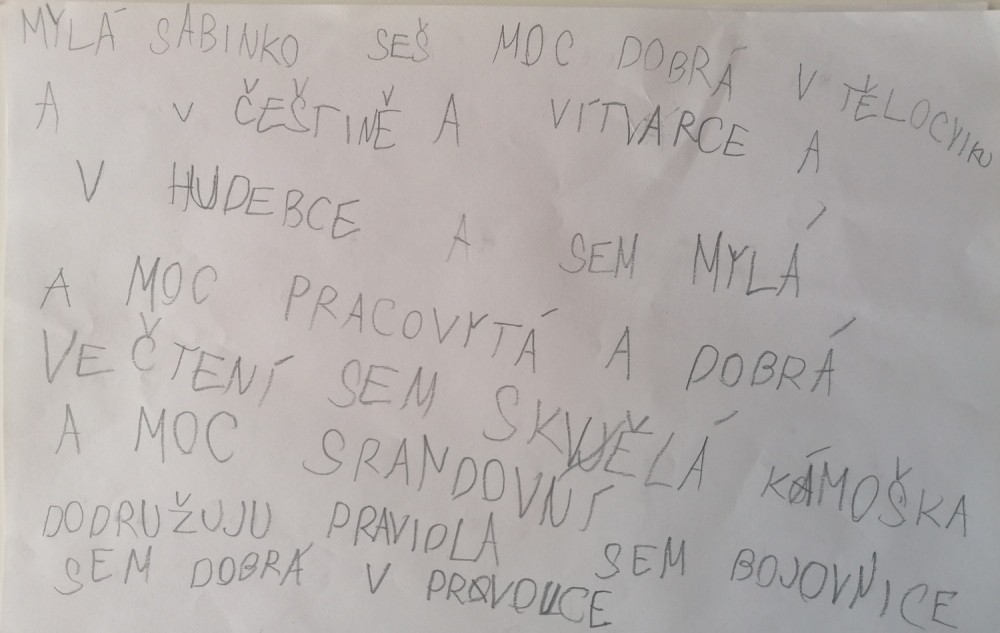 MYLÁ SABINKO SEŠ MOC DOBRÁ V TĚLOCVIKU
A V ČEŠTINĚ A VÍTVÁRCE A
V HUDEBCE A SEM MYLÁ
A MOC PRACOVYTÁ A DOBRÁ
VE ČTENÍ SEM SKVĚLÁ KÁMOŠKA
A MOC SRANDOVNÍ
DODRUŽUJU PRAVIDLA SEM BOJOVNICE
SEM DOBRÁ V PRVOUCE